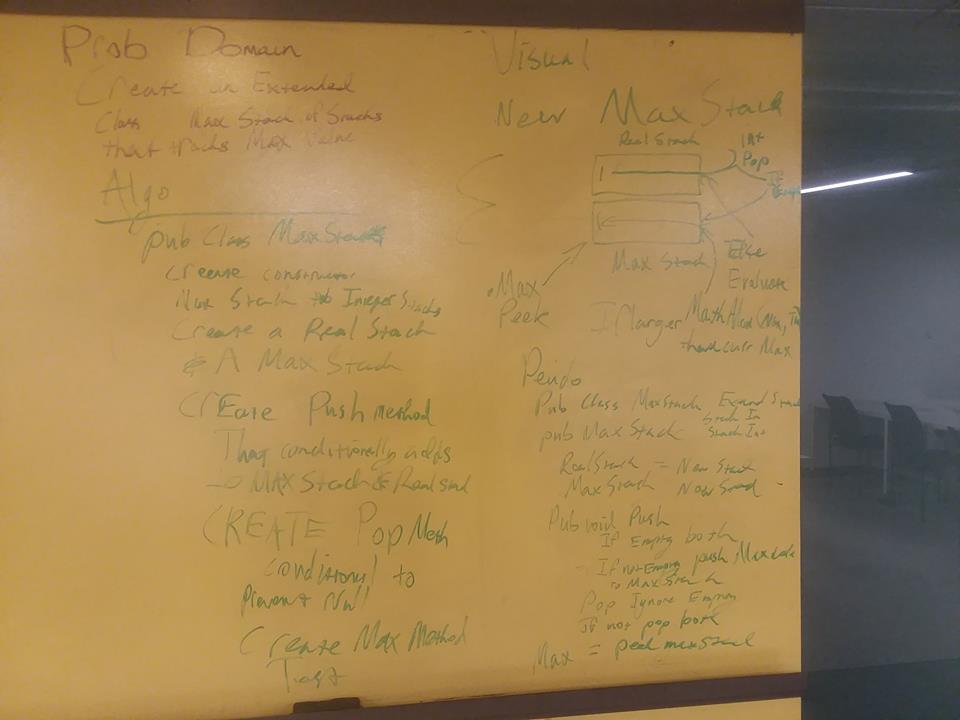 Prob Domain
Create an Extended
Class Max Stack of Stacks
that tracks Max Value
Algo
pub Class MaxStack
Create constructor
New Stack Integer Stacks
Create a Real Stack
& A Max Stack
CREate Push method
That conditionally adds
to MAX Stack & Real
CREATE Pop Meth
conditional to
Prevent Null
Create Max Method
Test
Visual
New Max Stack
Real Stack
Int
Pop
If
Empty
Max Stack
Else
Evaluate
Max
Peek
If larger Math Max (Max,
than curr Max
Psudo
Pub Class MaxStack Stack
Stack In
pub Max Stack Stack Int
RealStack = New Stack
MaxStack New
Pub void Push
If Empty both
If not Empty push Max
to Max Stack
Pop Ignore Empty
If not pop both
Max = peek maxStack